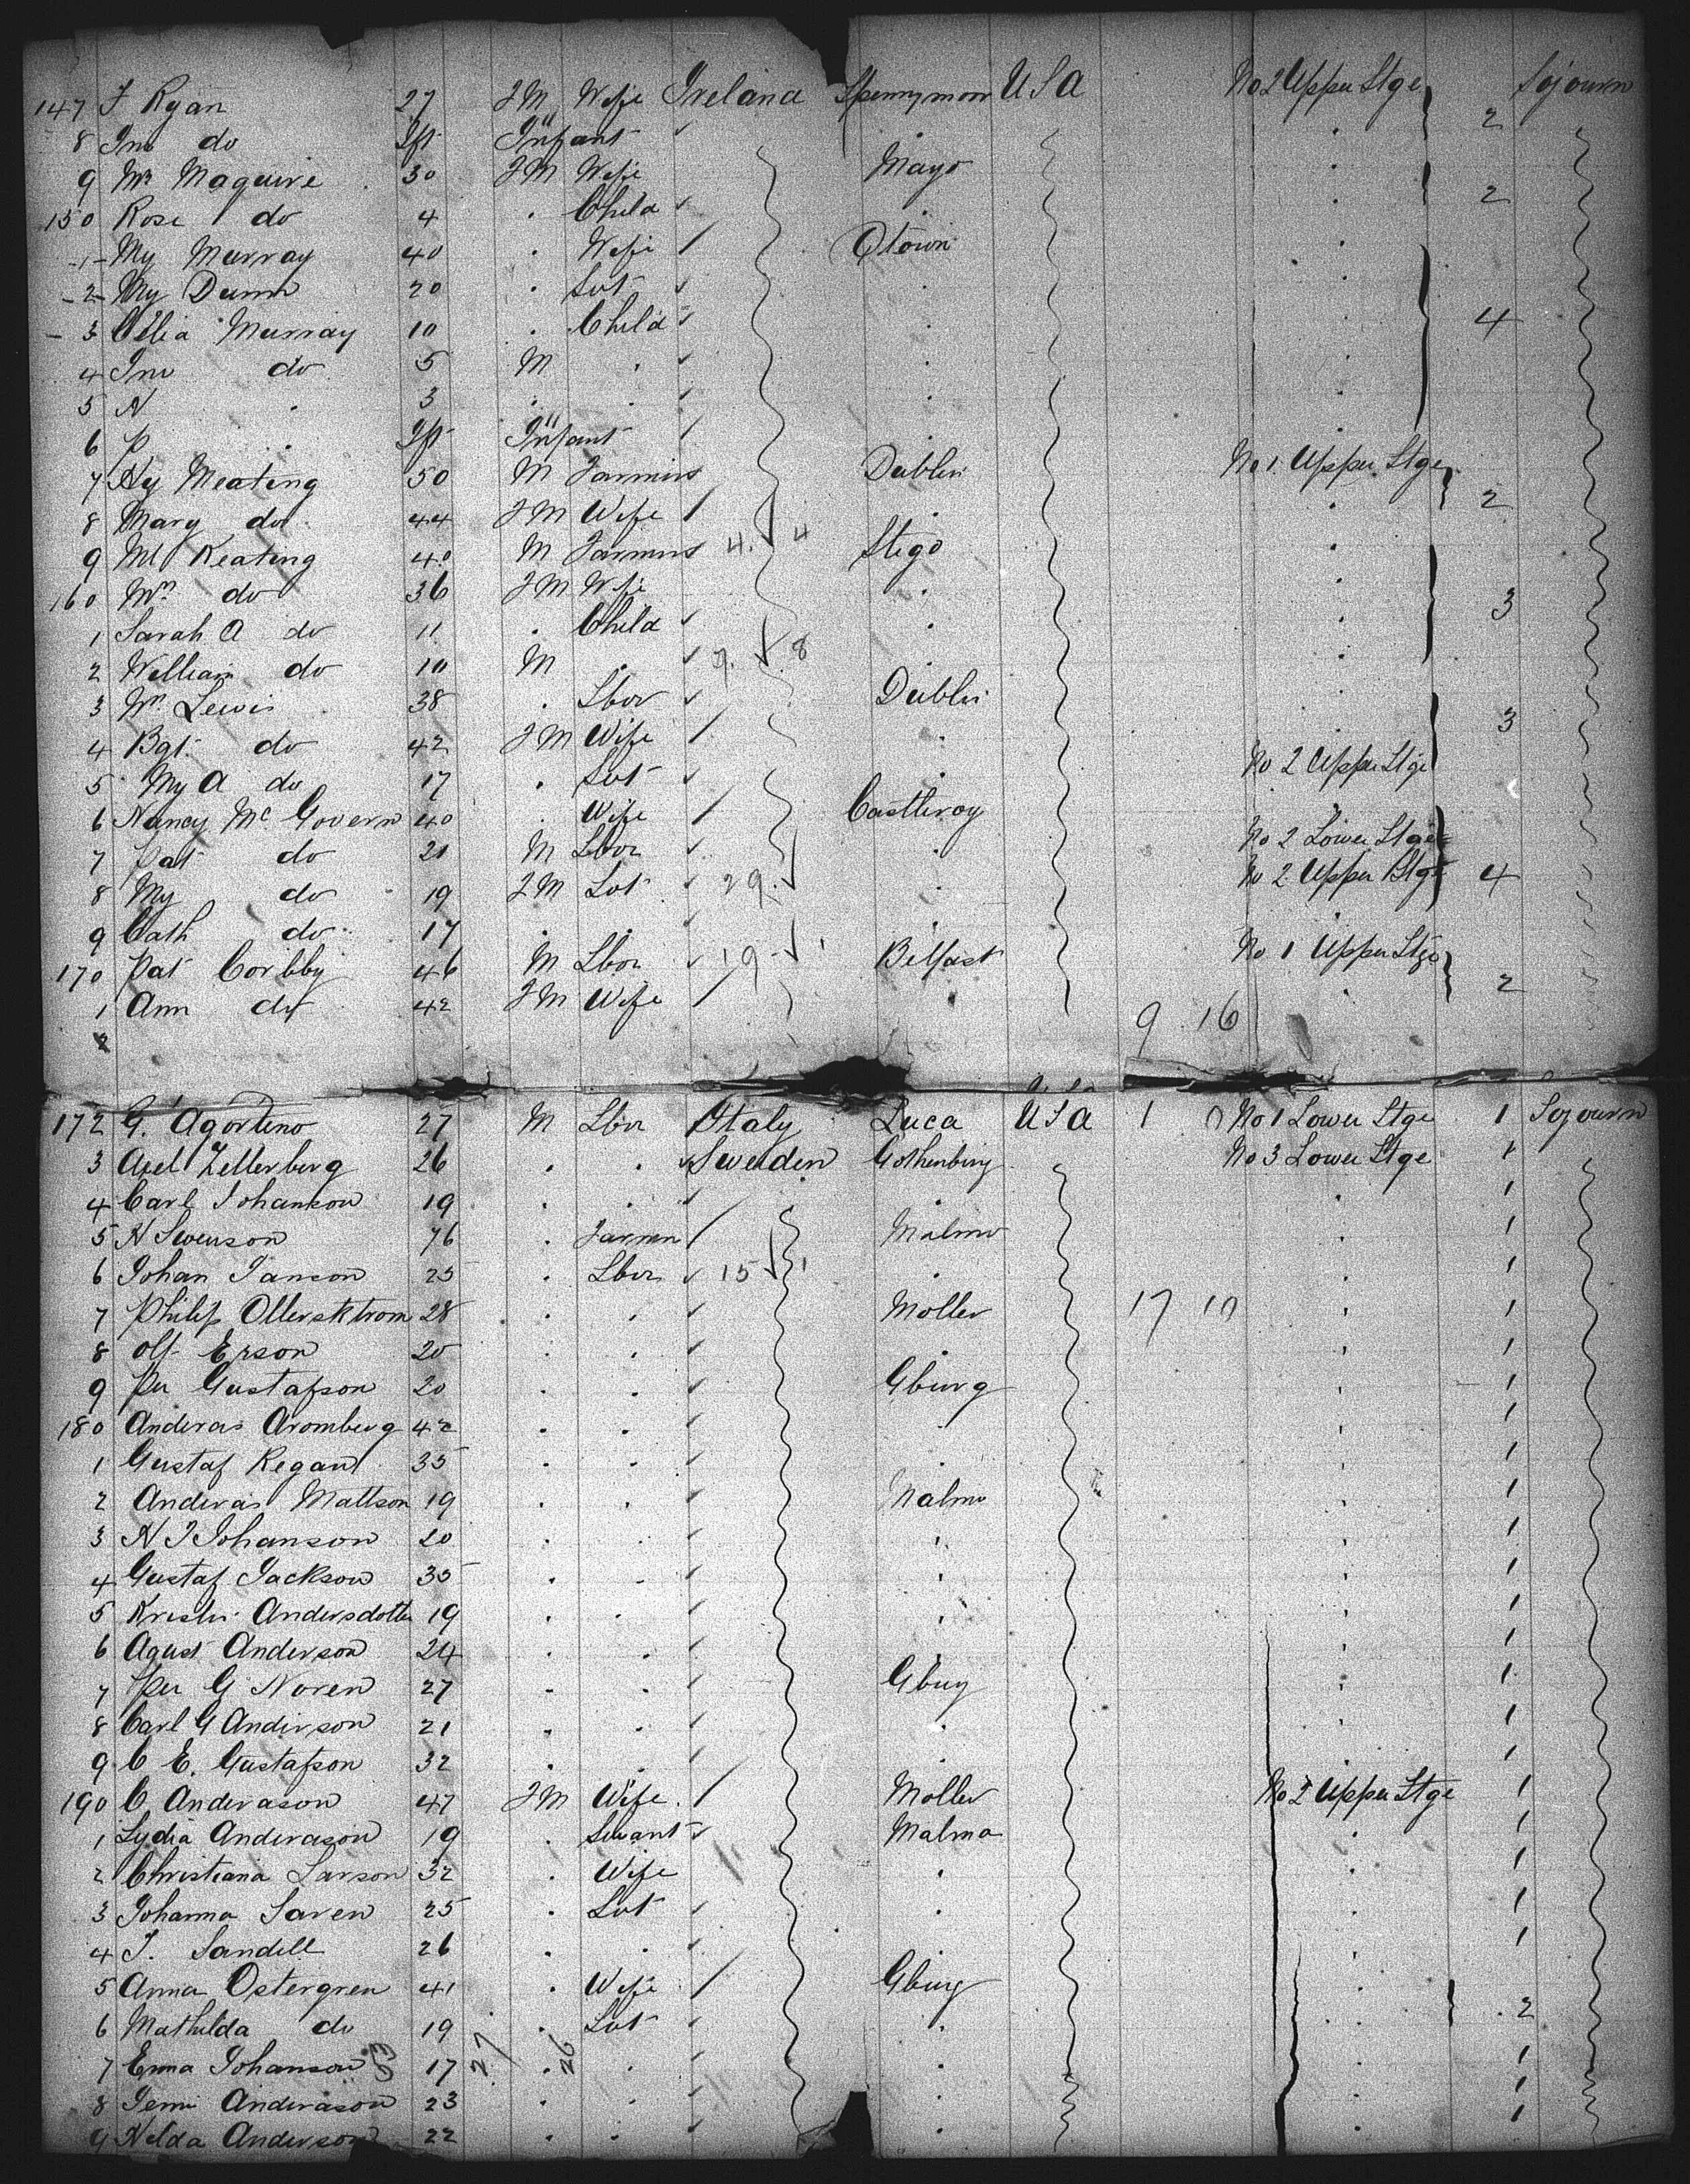 147 F Ryan 27 FM Wife Ireland Spennymoor USA No 2 Upper Stge 2 Sojourn
8 Jno do Ift Infant
9 Mrs Maguire 30 FM Wife Mayo
150 Rose do 4 Child 2
-1- My Murray 40 Wife Qtown
-2- My Dunn 20 Svt
-3 Celia Murray 10 Child 4
4 Jno do 5 M
5 N 3
6 P Ift Infant
7 Hy Meating 50 M Farmers Dublin No 1 Upper Stge
8 Mary do 44 FM Wife 2
9 Ml Keating 40 M Farmers 4. 4 Sligo
160 Mrs do 36 FM Wife
1 Sarah A do 11 Child 3
2 William do 10 M 8
3 Wm Lewis 38 Lbor Dublin
4 Bgt do 42 FM Wife 3
5 My A do 17 Svt No 2 Upper Stge
6 Nancy Mc Govern 40 Wife Castleroy
7 Pat do 21 M Lbor No 2 Lower Stge
8 My do 19 FM Svt 29 No 2 Upper Stge 4
9 Cath do 17
170 Pat Corbby 46 M Lbor 19 Belfast No 1 Upper Stge
1 Ann do 42 FM Wife 2
2 9 16
172 G. Agortino 27 M Lbor Italy Luca USA 1 0 No 1 Lower Stge 1 Sojourn
3 Axel Zellerberg 26 Sweden Gothenburg No 3 Lower Stge 1
4 Carl Johanson 19 1
5 N Swenson 76 Farmer Malmo 1
6 Johan Janson 25 Lbor 15 1 1
7 Philip Ollerstktrom 28 Moller 17 10 1
8 Olf Erson 20 1
9 Per Gustafson 20 Gburg 1
180 Anderas Aromberg 42 1
1 Gustaf Regant 35 1
2 Anderas Mattson 19 Malmo 1
3 N J Johanson 20 1
4 Gustaf Jackson 35 1
5 Kristin Andersdotter 19 1
6 Agust Anderson 24 1
7 Per G Noren 27 Gburg 1
8 Carl G Anderson 21 1
9 C E. Gustafson 32 1
190 C Anderason 47 FM Wife Moller No 2 Upper Stge 1
1 Lydia Anderason 19 Servant Malmo 1
2 Christiana Larson 32 Wife 1
3 Johanna Saren 25 Svt 1
4 J. Sandell 26 1
5 Anna Ostergren 41 Wife Gburg
6 Mathilda do 19 Svt 2
7 Emma Johanson 53 17 27 26 1
8 Jenni Anderason 23 1
9 Hilda Anderson 22 1